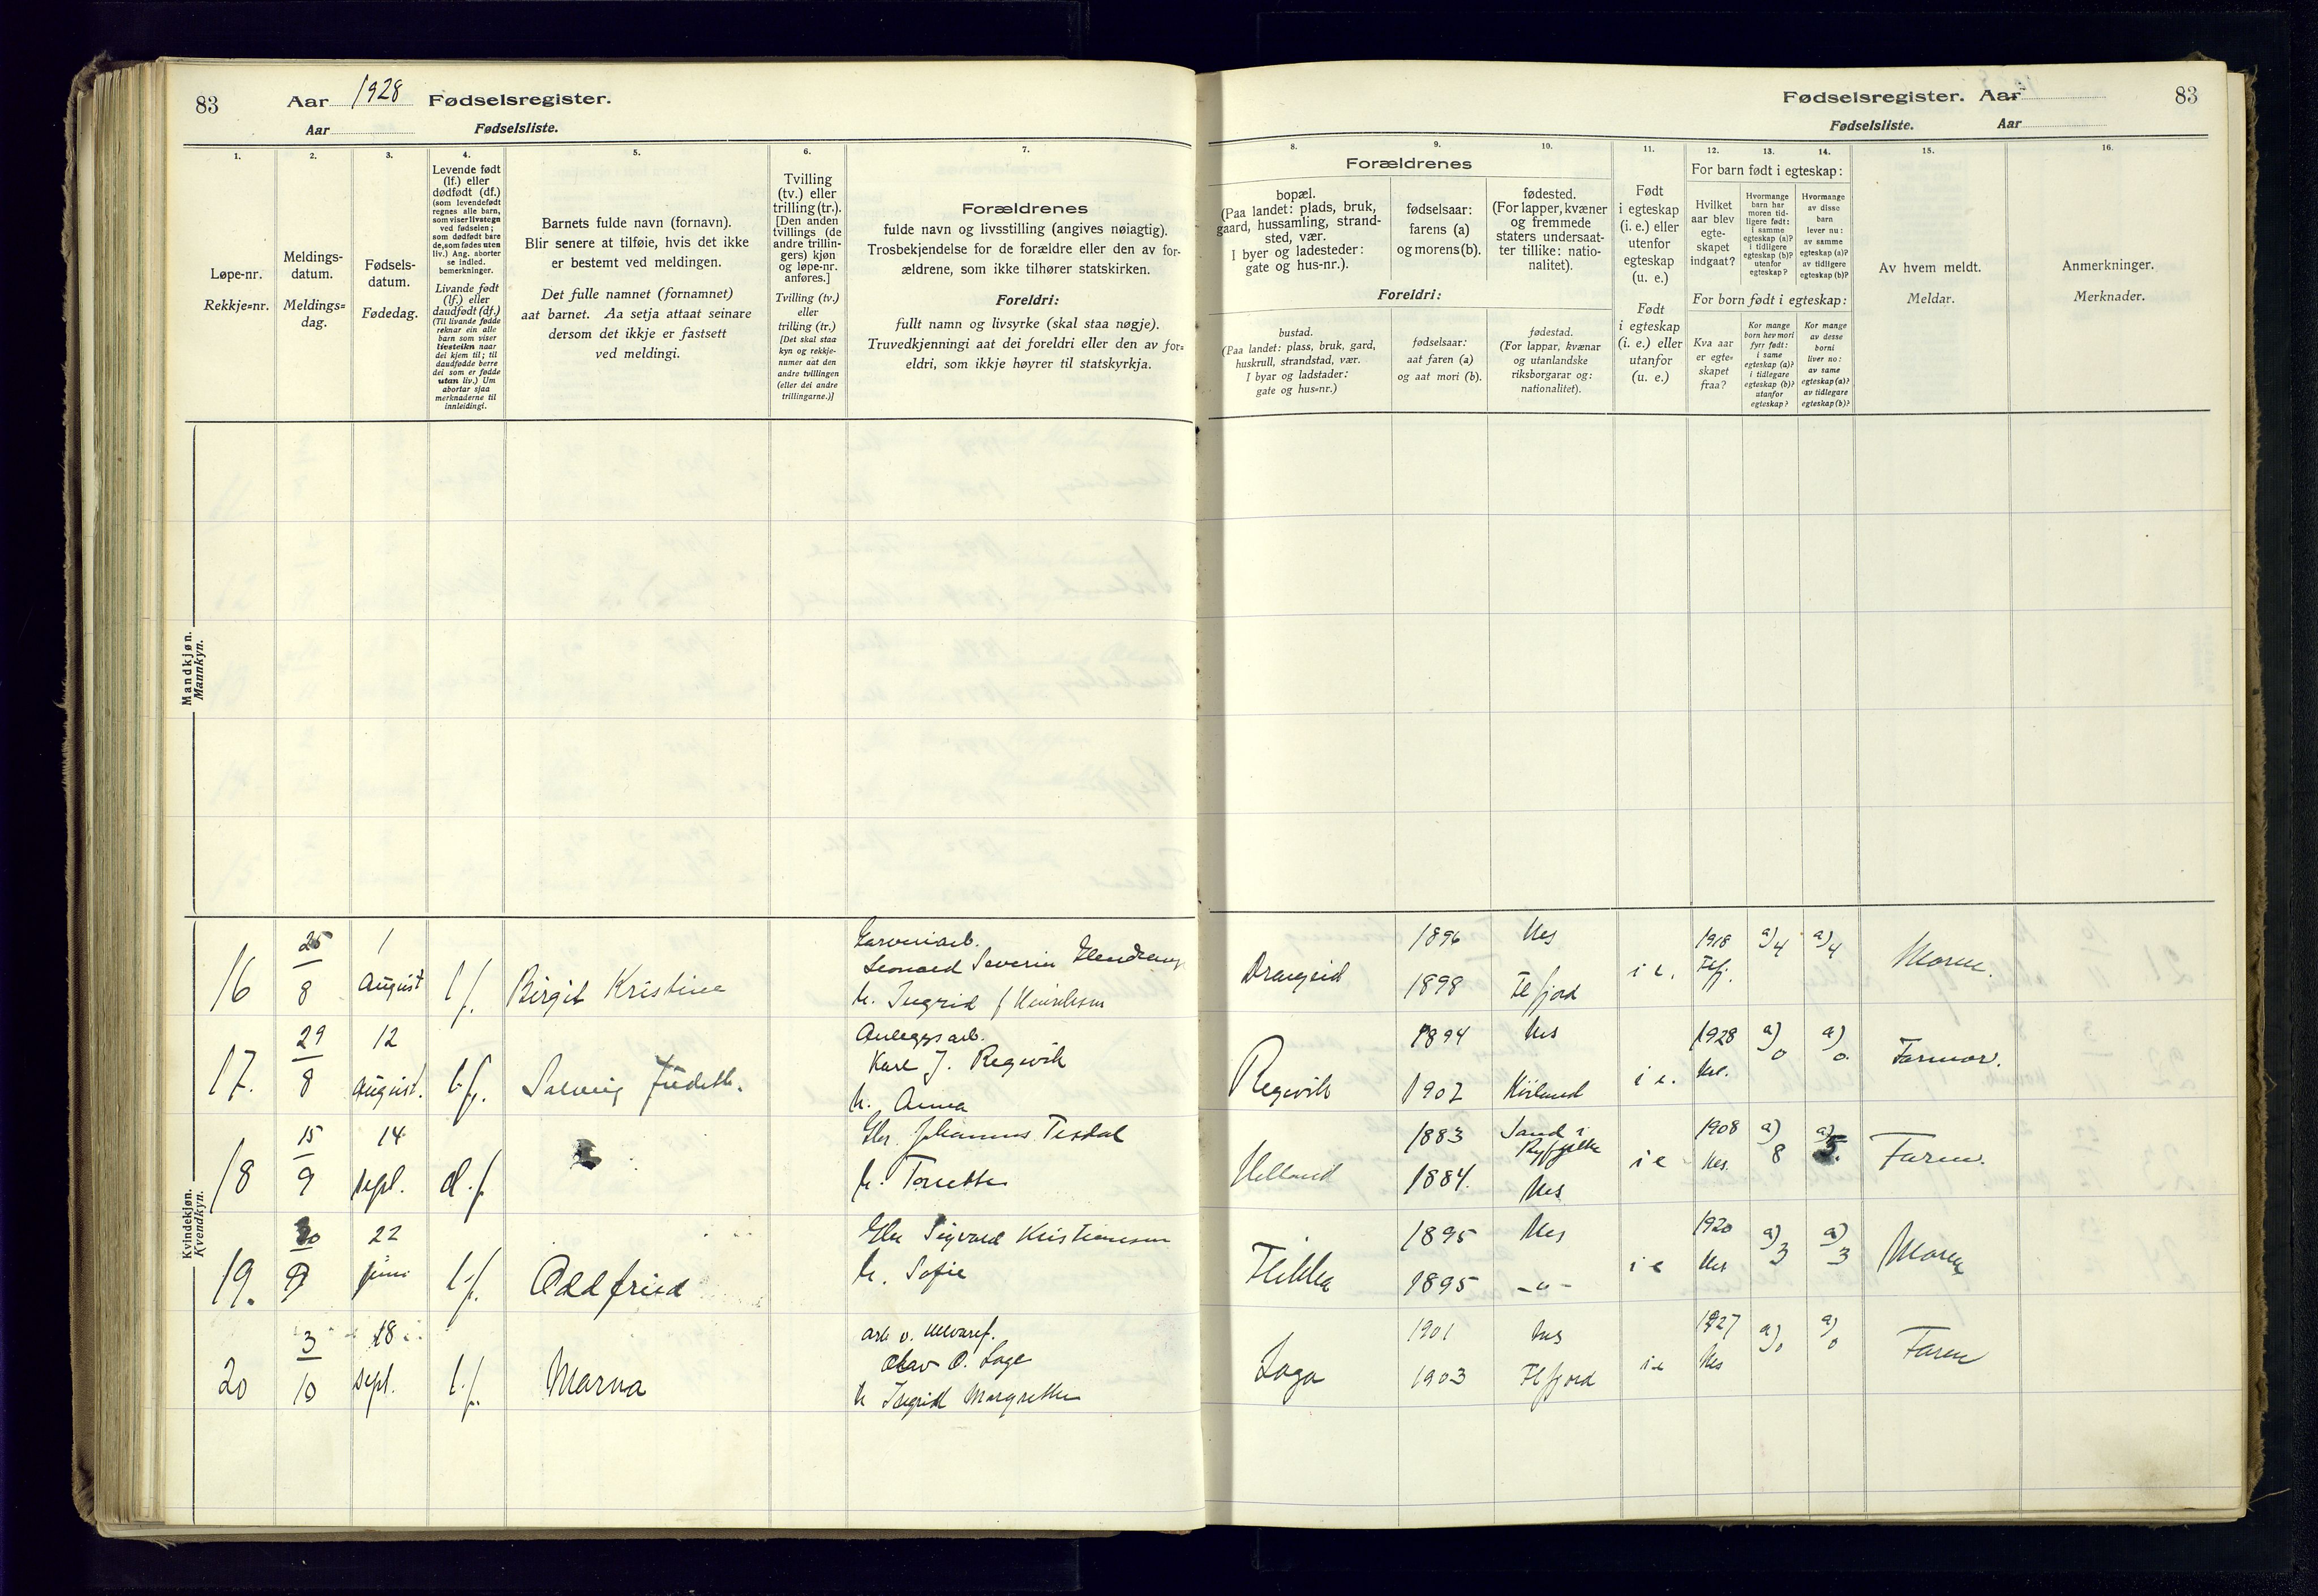 83
Aar 1928 Fødselsregister.
Aar Fødselsliste.
1.
Løpe-nr.
Rekkje=nr.
2.
Meldings-
datum.
Meldings=
dag.
3.
Fødsels-
datum.
Fødedag.
4.
Levende født
(lf.) eller
dødfødt (df.)
(som levendefødt
regnes alle barn,
som viser livstegn
ved fødselen;
som dødfødt bare
de, som fødes uten
liv.) Ang. aborter
se indled.
bemerkninger.
Livande født
(lf.) eller
daudfødt (df.)
(Til livande fødde
reknar ein alle
barn som viser
livsteikn naar
dei kjem til; til
daudfødde berre
dei som er fødde
utan liv.) Um
abortar sjaa
merknaderne til
innleidingi.
5.
Barnets fulde navn (fornavn).
Blir senere at tilføie, hvis det ikke
er bestemt ved meldingen.
Det fulle namnet (fornamnet)
aat barnet. Aa setja attaat seinare
dersom det ikkje er fastsett
ved meldingi.
6.
Tvilling
(tv.) eller
trilling (tr.).
[Den anden
tvillings (de
andre trillin-
gers) kjøn
og løpe-nr.
anføres.]
Tvilling (tv.)
eller
trilling (tr.)
[Det skal staa
kyn og rekkje-
numer aat den
andre tvillingen
(eller dei andre
trillingarne.)]
7.
Forældrenes
fulde navn og livsstilling (angives nøiagtig).
Trosbekjendelse for de forældre eller den av for-
ældrene, som ikke tilhører statskirken.
Foreldri:
fullt namn og livsyrke (skal staa nøgje).
Truvedkjenningi aat dei foreldri eller den av for=
eldri, som ikkje høyrer til statskyrkja.
Mandkjøn.
Mannkyn.
Kvindekjøn.
Kvendkyn.
Fødselsregister. Aar
83
Fødselsliste. Aar
Forældrenes
8.
bopæl.
(Paa landet: plads, bruk,
gaard, hussamling, strand-
sted, vær.
I byer og ladesteder:
gate og hus-nr.).
9.
fødselsaar:
farens (a)
og morens (b).
10.
fødested.
(For lapper, kvæner
og fremmede
staters undersaat-
ter tillike: natio-
nalitet).
Foreldri:
bustad.
(Paa landet: plass, bruk, gard,
huskrull, strandstad, vær.
I byar og ladstader:
gate og hus=nr.)
fødselsaar:
aat faren (a)
og aat mori (b).
fødestad.
(For lappar, kvænar
og utanlandske
riksborgarar og:
nationalitet).
11.
Født
i egteskap
(i. e.) eller
utenfor
egteskap
(u. e.)
Født
i egteskap
(i. e.) eller
utanfor
(u. e.)
12. 13. 14.
For barn født i egteskap:
Hvilket
aar blev
egte-
skapet
indgaat?
Hvormange
barn har
moren tid-
ligere født:
i samme
egteskap (a)?
i tidligere
egteskap (b)?
utenfor
egteskap?
Hvormange
av disse
barn
lever nu:
av samme
egteskap (a)?
av tidligere
egteskap (b)?
For born født i egteskap:
Kva aar
er egte=
skapet
fraa?
Kor mange
born hev mori
fyrr født:
i same
egteskap (a)?
i tidlegare
egteskap (b)?
utanfor
egteskap?
Kor mange
av desse
borni
liver no:
av same
egteskap (a)?
av tidlegare
egteskap (b)?
15.
Av hvem meldt.
Meldar.
16.
Anmerkninger.
Merknader.
16
25
8
1
August
l.f.
Birgit Kristine
Garveriarb.
Leonard Severin
h. Ingrid f Henriksen
Drangeid
1896
1898
Nes
Flefjord
i e.
1918
Flfj.
a) 4
a) 4
Moren.
17.
29
8
12
August.
l.f.
Solveig Judith.
Anleggsarb.
Karl J. Regevik
h. Anna
Regevik
1894
1902
Nes
i e.
1928
a) 0
a) 0.
Farmor.
18
15
9
14
sept.
d.f.
Gbr. Johannes Tesdal
h. Tonette
Helland
1883
1884.
Sand i
Ryfylke
Nes
i e
1908
Nes.
a) 8
a) 5.
Faren.
19.
20
9
22
juni
l.f.
Oddfrid
Gbr Sigvald Kristiansen
h. Sofie
Flikka
1895
1895
Nes
-"-
i e
1920
Nes
a) 3
a) 3
Moren
20
3
10
18
sept.
l.f.
Marna
arb v. ullvaref.
Olav O. Loge
h Ingrid Margrethe
Loga
1901
1903
Nes
Flfjord
i e
1927
Nes
a) 0
a) 0
Faren